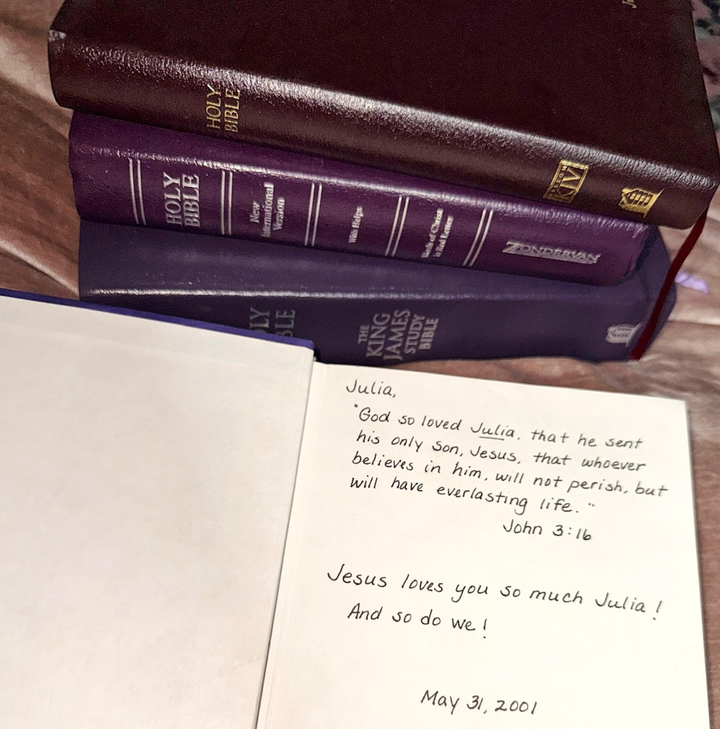 HOLY
BIBLE
KJV
HOLY
BIBLE
New
International
Version
With Helps
Words of Christ
in Red Letter
ZONDERVAN
THE
KING
JAMES
STUDY
BIBLE
Julia,
"God so loved Julia, that he sent
his only son, Jesus, that whoever
believes in him, will not perish, but
will have everlasting life."
John 3:16
Jesus loves you so much Julia!
And so do we!
May 31, 2001